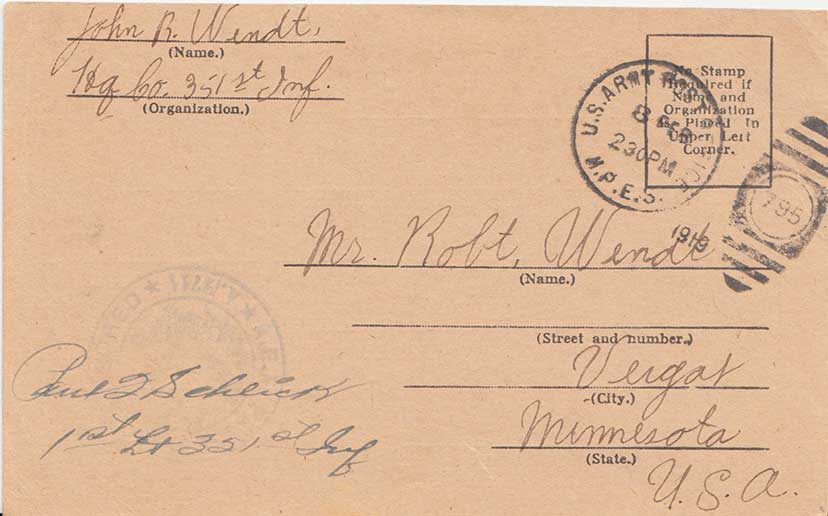 John R. Wendt,
(Name.)
Hq Co. 351st Inf.
(Organization.)
No Stamp
Required if
Name and
Organization
is Placed In
Upper Left
Corner.
U.S. ARMY
8 FEB
230PM
M.P.E.S.
1919
795
Mr. Robt, Wendt
(Name.)
(Street and number.)
Vergas
(City.)
Minnesota
(State.)
U.S.A.
A.E.
Paul Schlick
1st Lt 351st Inf